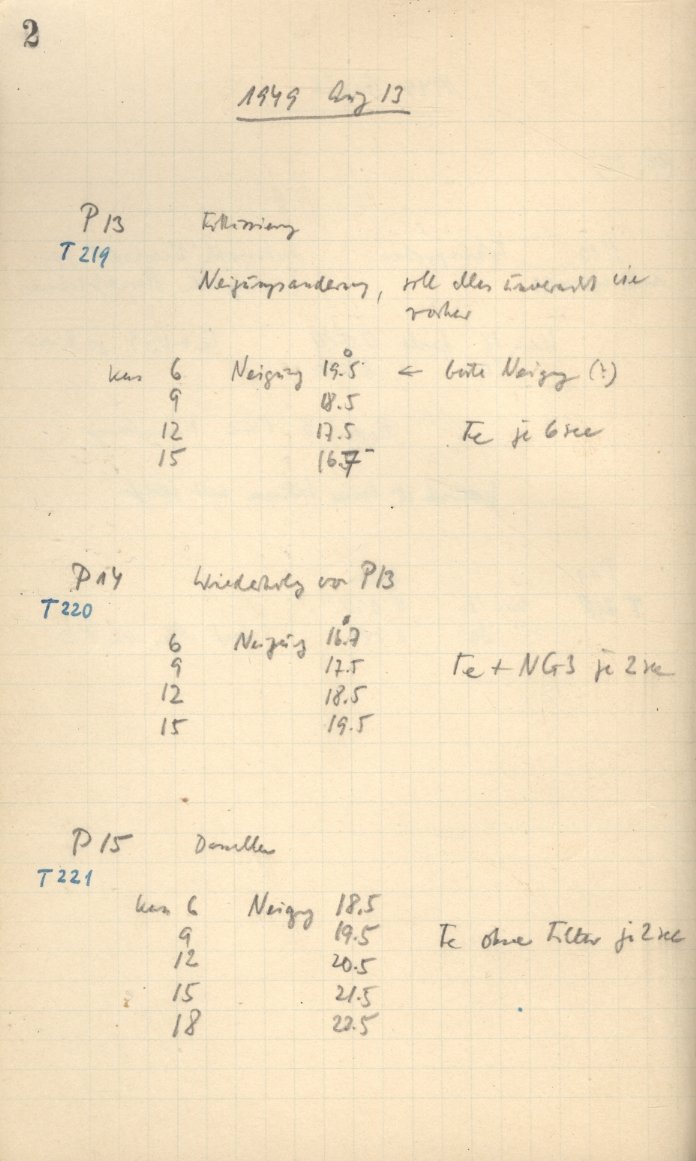 2
1949 Aug 13
P 13 Fokussierung
T 219
Neigungsänderung, soll alles unverändt wie
vorher
6 Neigung 19.5° ← beste Neigung (?)
9 18.5
12 17.5 Fe je 6 sec
15 16.7
P 14 Wiederholg von P13
T 220
6 Neigung 16.7°
9 17.5 Fe + NG3 je 2 sec
12 18.5
15 19.5
P 15 Dasselbe
T 221
6 Neigung 18.5
9 19.5 Fe ohne Filter je 2 sec
12 20.5
15 21.5
18 22.5